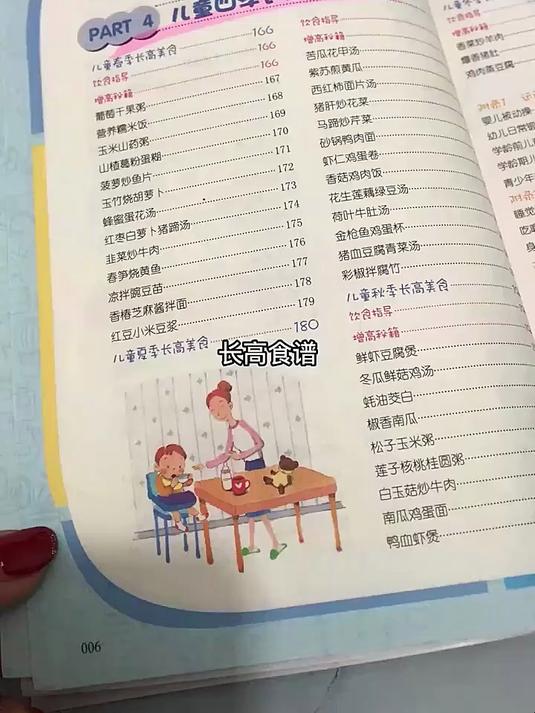 PART 4
儿童四季
儿童春季长高美食 166
饮食指导 166
增高秘籍 166
葡萄干果粥 167
营养糯米饭 168
玉米山药粥 169
山楂葛粉蛋糊 170
菠萝炒鱼片 171
玉竹烧胡萝卜 172
蜂蜜蛋花汤 173
红枣白萝卜猪蹄汤 174
韭菜炒牛肉 175
春笋烧黄鱼 176
凉拌豌豆苗 177
香椿芝麻酱拌面 178
红豆小米豆浆 179
儿童夏季长高美食 180
长高食谱
006
饮食指导
增高秘籍
苦瓜花甲汤
紫苏煎黄瓜
西红柿面片汤
猪肝炒花菜
马蹄炒芹菜
砂锅鸭肉面
虾仁鸡蛋卷
香菇鸡肉饭
花生莲藕绿豆汤
荷叶牛肚汤
金枪鱼鸡蛋杯
猪血豆腐青菜汤
彩椒拌腐竹
儿童秋季长高美食
饮食指导
增高秘籍
鲜虾豆腐煲
冬瓜鲜菇鸡汤
蚝油茭白
椒香南瓜
松子玉米粥
莲子核桃桂圆粥
白玉菇炒牛肉
南瓜鸡蛋面
鸭血虾煲
儿童冬
饮食指导
增高秘籍
香菜炒羊肉
爆香猪肚
鸡肉蒸豆腐
附录1
婴儿被动操
幼儿日常锻
学龄前儿
学龄期儿
青少年
附录
睡觉
吃
身